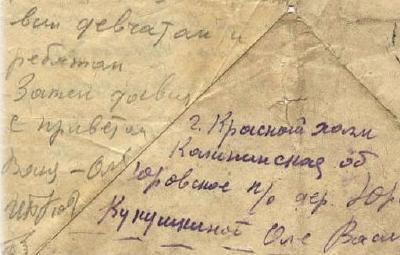 вии девчатам и
ребятам
Затем до свид
с приветом
Ваня - Оле
г. Красный холм
Калининская об
Юровское п/о дер. Юр
Кукушкиной Оле Васи